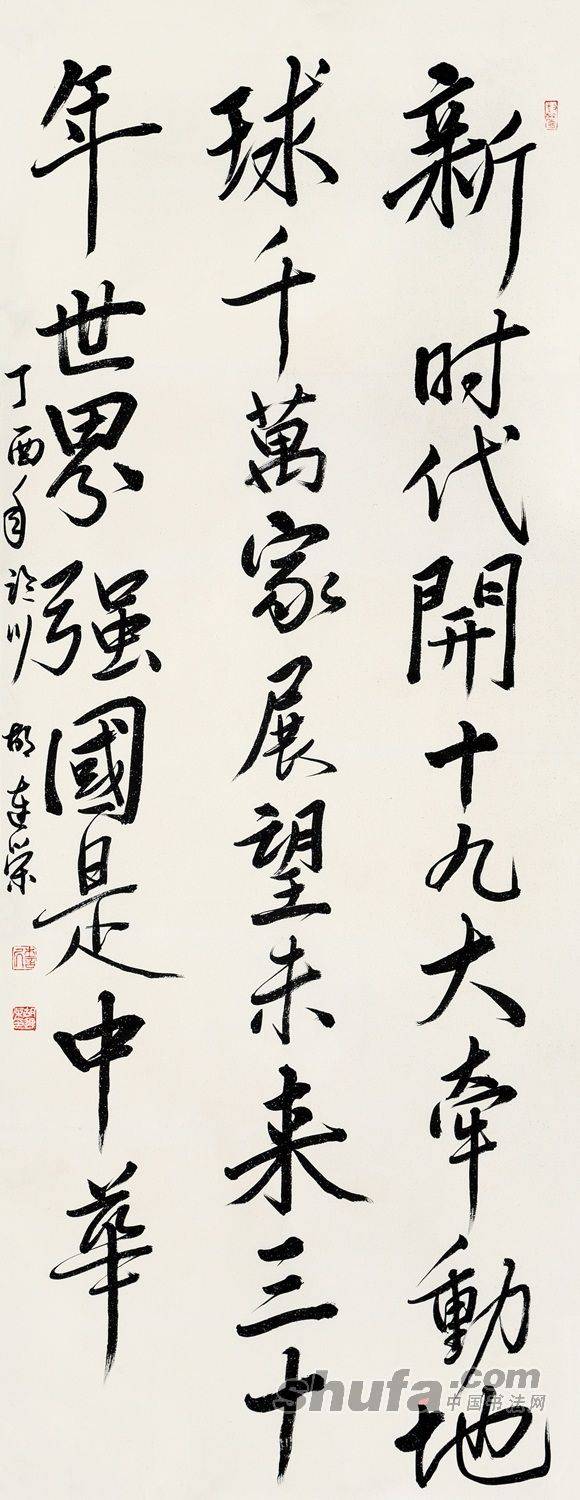 新时代開十九大牽動地
球千萬家展望未来三十
年世界强國是中華
丁酉年 胡連榮
shufa.com
中国书法网